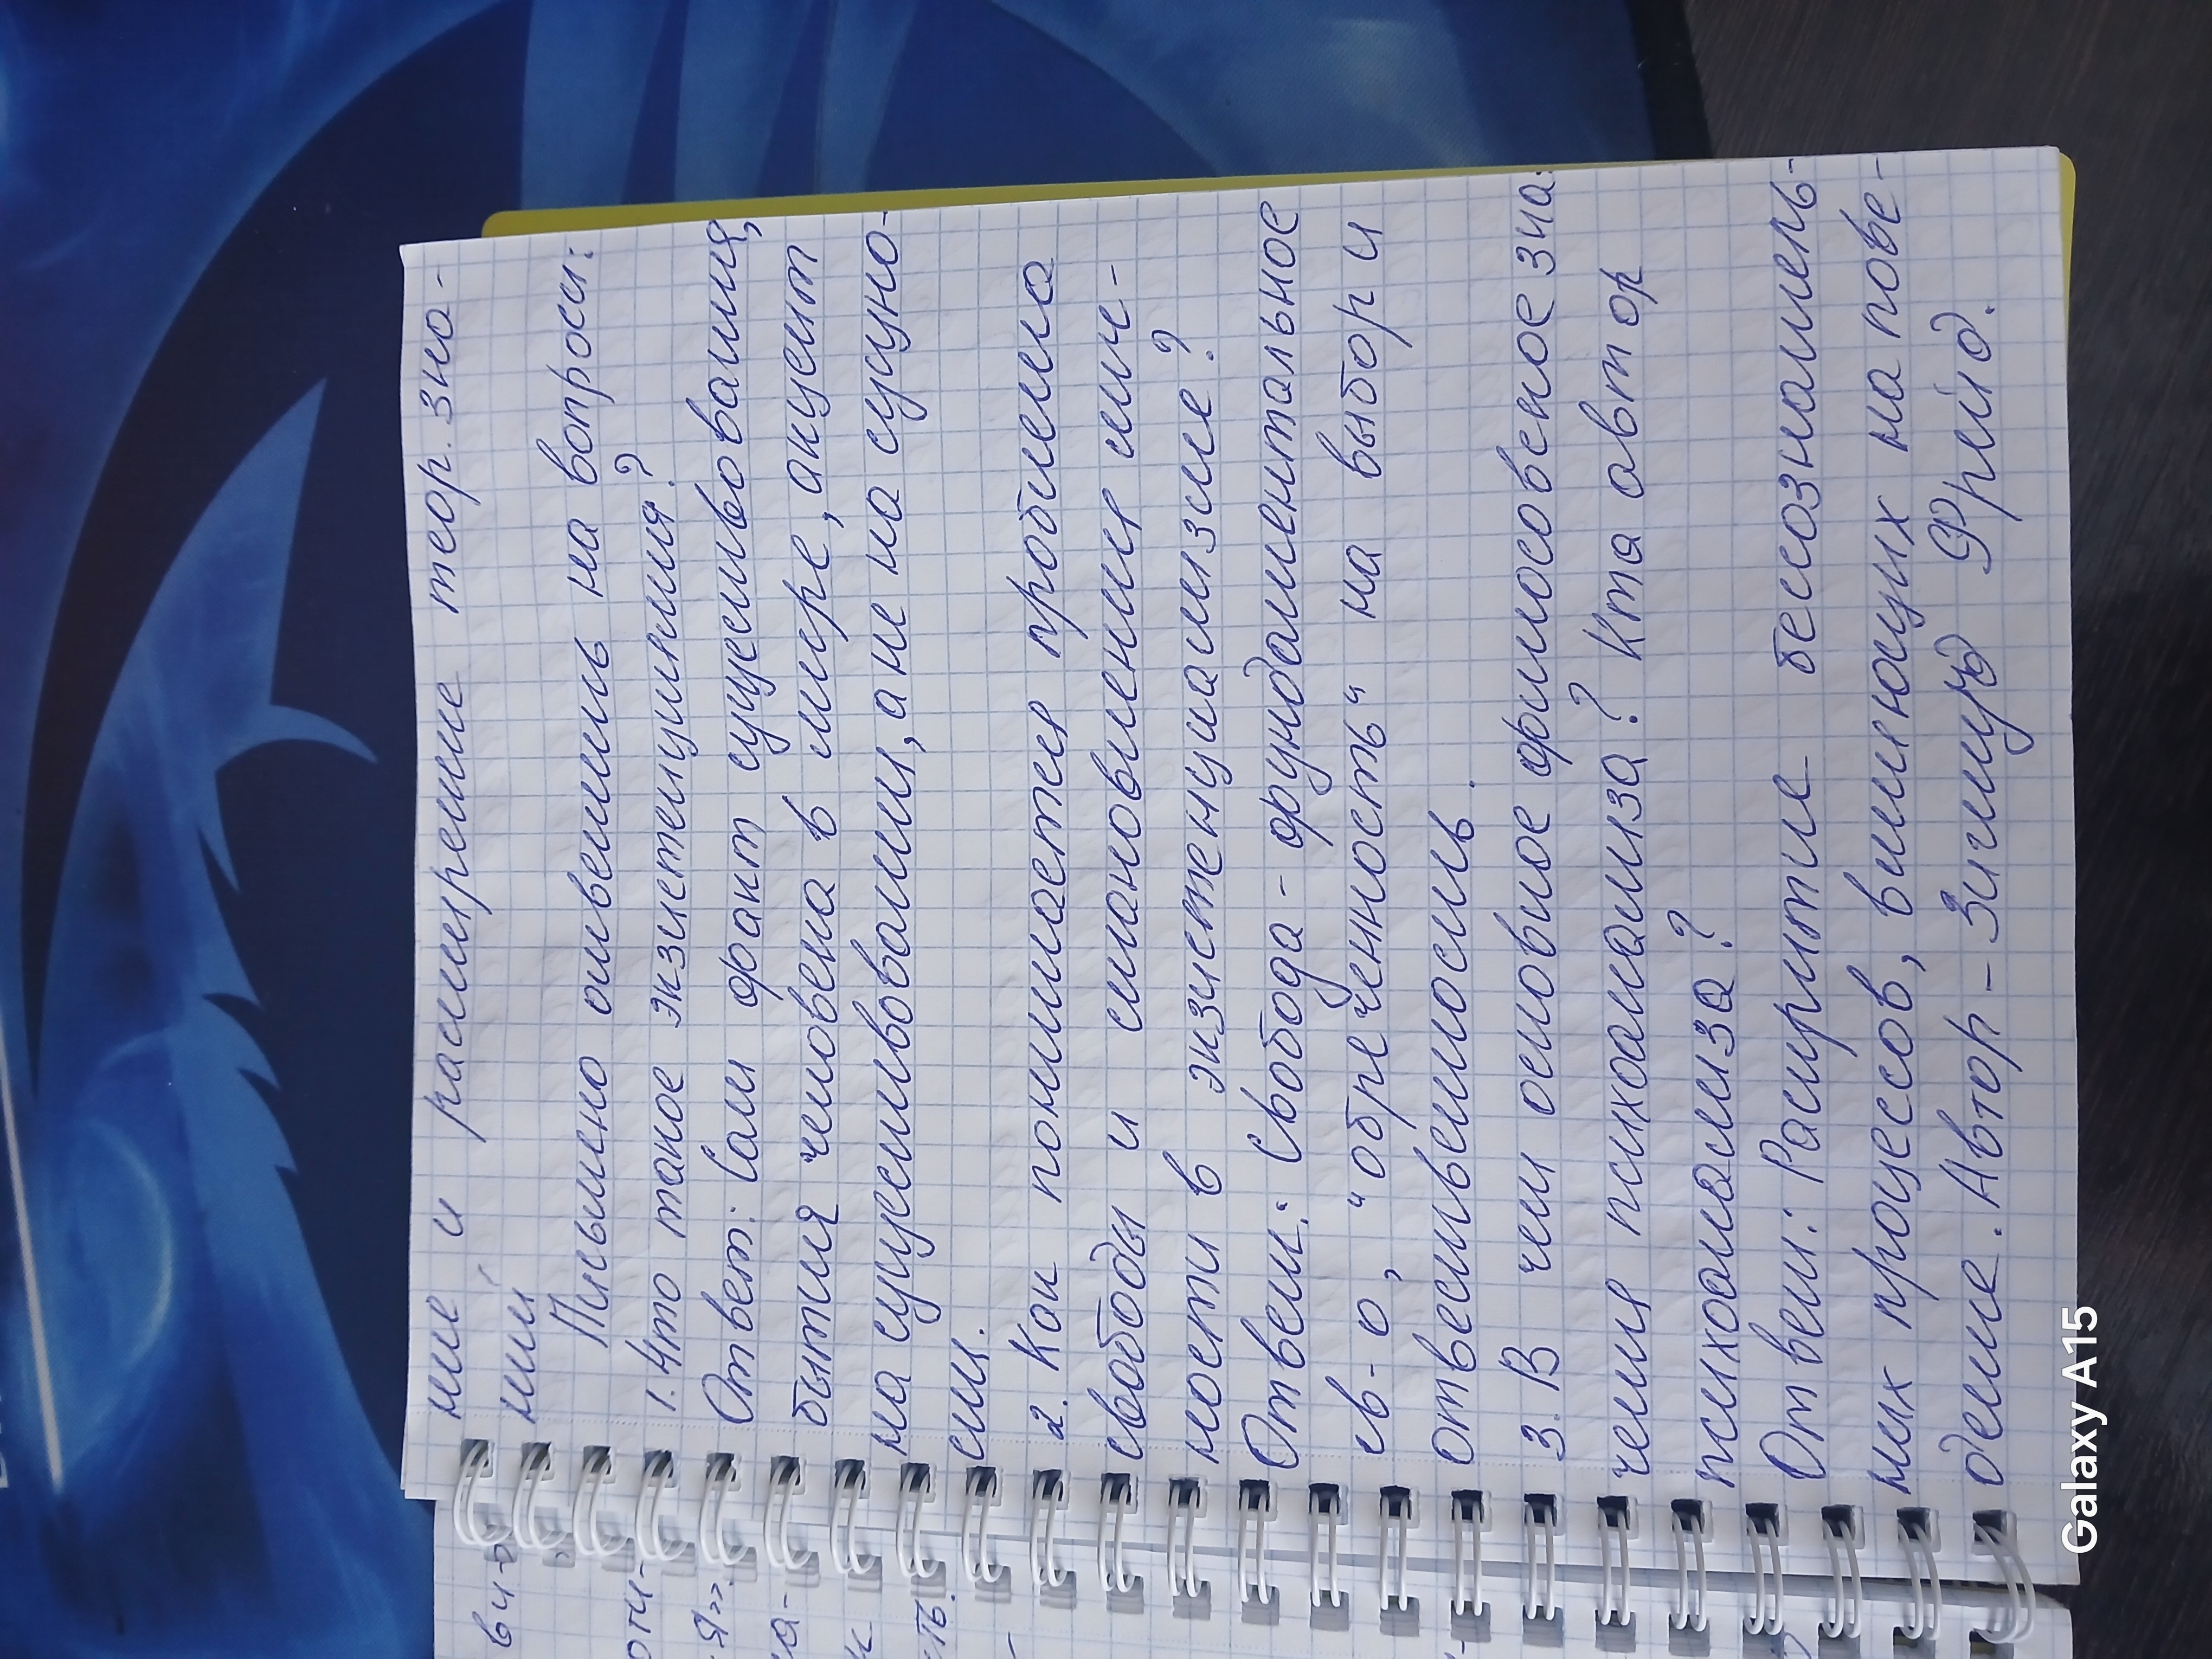 ние и расширение теор. зна-
ний
Письменно ответить на вопросы:
1. Что такое экзистенция?
Ответ: Сам факт существования,
бытия человека в мире, акцент
на существовании, а не на сущно-
сти.
2. Как понимается проблема
свободы и становления лич-
ности в экзистенциализме?
Ответ: Свобода - фундаментальное
св-о, "обреченность" на выбор и
ответственность.
3. В чем основное философское зна-
чения психоанализа? Кто автор
психоанализа?
Ответ: Раскрытие бессознатель-
ных процессов, влияющих на пове-
дение. Автор - Зигмунд Фрейд.
ви-
оти-
я».
а-
к
сть.
Galaxy A15